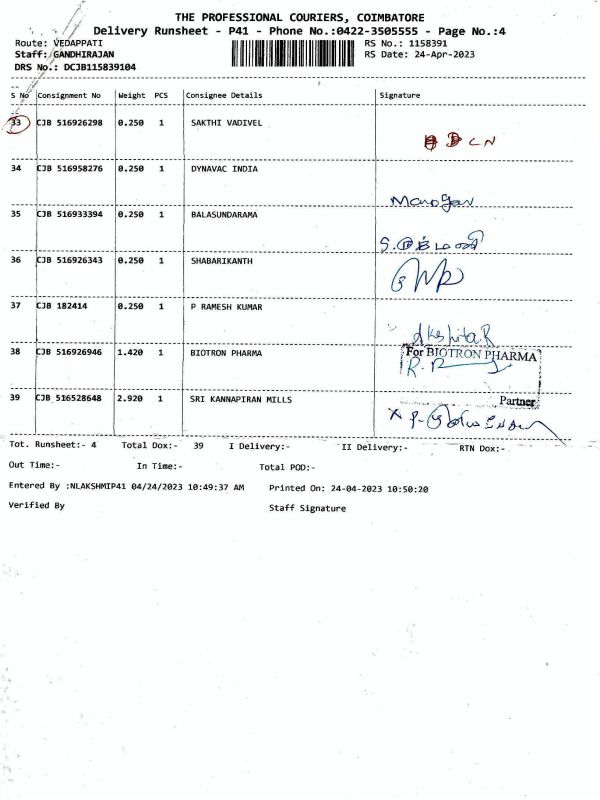 THE PROFESSIONAL COURIERS, COIMBATORE
Delivery Runsheet - P41 - Phone No.:0422-3505555 - Page No.:4
Route: VEDAPPATI RS No.: 1158391
Staff: GANDHIRAJAN RS Date: 24-Apr-2023
DRS No.: DCJB115839104
S No Consignment No Weight PCS Consignee Details Signature
33 CJB 516926298 0.250 1 SAKTHI VADIVEL
D C N
34 CJB 516958276 0.250 1 DYNAVAC INDIA
Manogar
35 CJB 516933394 0.250 1 BALASUNDARAMA
36 CJB 516926343 0.250 1 SHABARIKANTH
37 CJB 182414 0.250 1 P RAMESH KUMAR
Akshita R
38 CJB 516926946 1.420 1 BIOTRON PHARMA For BIOTRON PHARMA
R. R
39 CJB 516528648 2.920 1 SRI KANNAPIRAN MILLS Partner
Tot. Runsheet:- 4 Total Dox:- 39 I Delivery:- II Delivery:- RTN Dox:-
Out Time:- In Time:- Total POD:-
Entered By :NLAKSHMIP41 04/24/2023 10:49:37 AM Printed On: 24-04-2023 10:50:20
Verified By Staff Signature